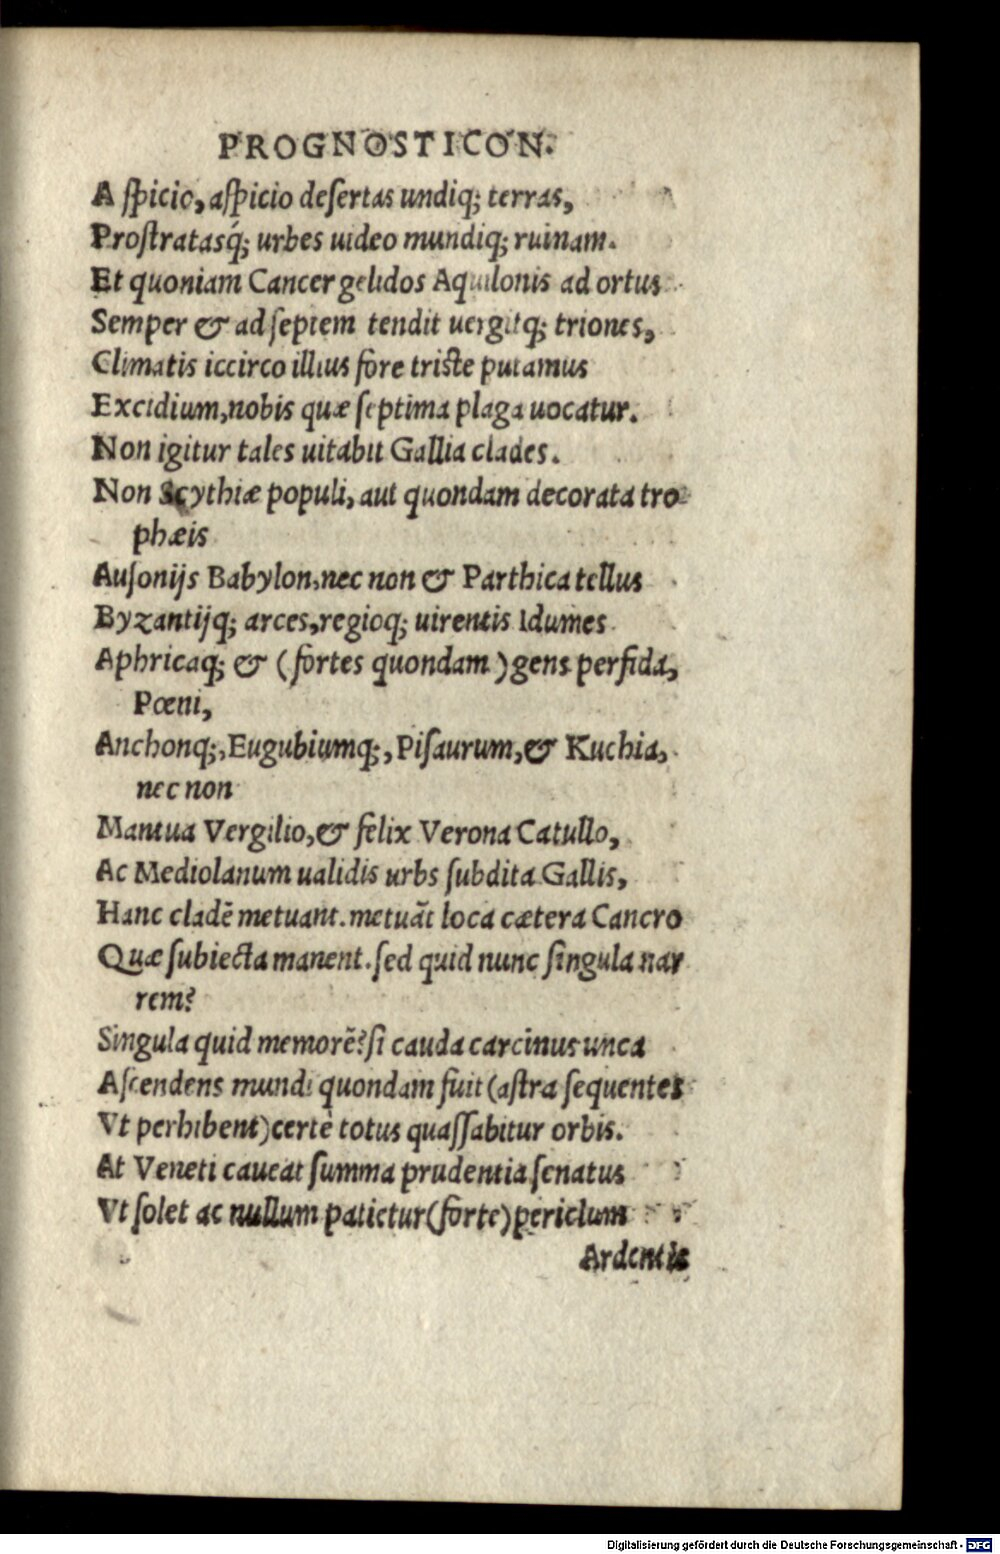 PROGNOSTICON.
Aſpicio, aſpicio deſertas undiq; terras,
Proſtratasq́; urbes uideo mundiq; ruinam.
Et quoniam Cancer gelidos Aquilonis ad ortus
Semper & ad ſeptem tendit uergitq; triones,
Climatis iccirco illius fore triſte putamus
Excidium, nobis quæ ſeptima plaga uocatur.
Non igitur tales uitabit Gallia clades.
Non Scythiæ populi, aut quondam decorata tro
phæis
Auſonijs Babylon, nec non & Parthica tellus
Byzantijq; arces, regioq; uirentis Idumes
Aphricaq; & (fortes quondam) gens perfida,
Pœni,
Anchonq;, Eugubiumq;, Piſaurum, & Kuchia,
nec non
Mantua Vergilio, & felix Verona Catullo,
Ac Mediolanum ualidis urbs ſubdita Gallis,
Hanc cladē metuant. metuāt loca cætera Cancro
Quæ ſubiecta manent. ſed quid nunc ſingula nar
rem?
Singula quid memorē? ſi cauda carcinus unca
Aſcendens mundi quondam fuit (aſtra ſequentes
Vt perhibent) certè totus quaſſabitur orbis.
At Veneti caueat ſumma prudentia ſenatus
Vt ſolet ac nullum patietur (forte) periclum
Ardentis
Digitalisierung gefördert durch die Deutsche Forschungsgemeinschaft - DFG